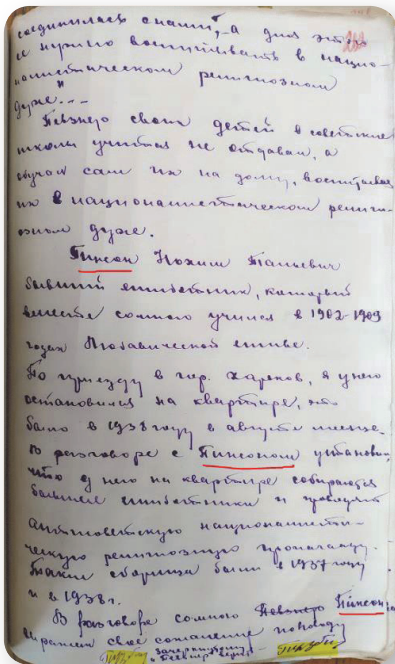 соединилась с нацией, а для этого
ее нужно воспитывать в нацио-
налистическом религиозном
духе"...
Певзнер своих детей в советские
школы учиться не отдавал, а
обучал сам их на дому, воспитывая
их в националистическом религи-
озном духе.
Пинсон Нохим Таньевич
бывший ешиботник, который
вместе со мною учился в 1902-1909
годах Любавической ешиве.
По приезду в гор. Харьков, я у него
остановился на квартире, это
было в 1938 году в августе месяце.
В разговоре с Пинсоном установил,
что у него на квартире собираются
бывшие ешиботники и проводят
антисоветскую националисти-
ческую религиозную пропаганду.
Такие сборища были в 1937 году
и в 1938 г.
В разговоре со мною Певзнер Пинсон
выразил свое согласие по поводу
зачеркнутому
Певзнер верить